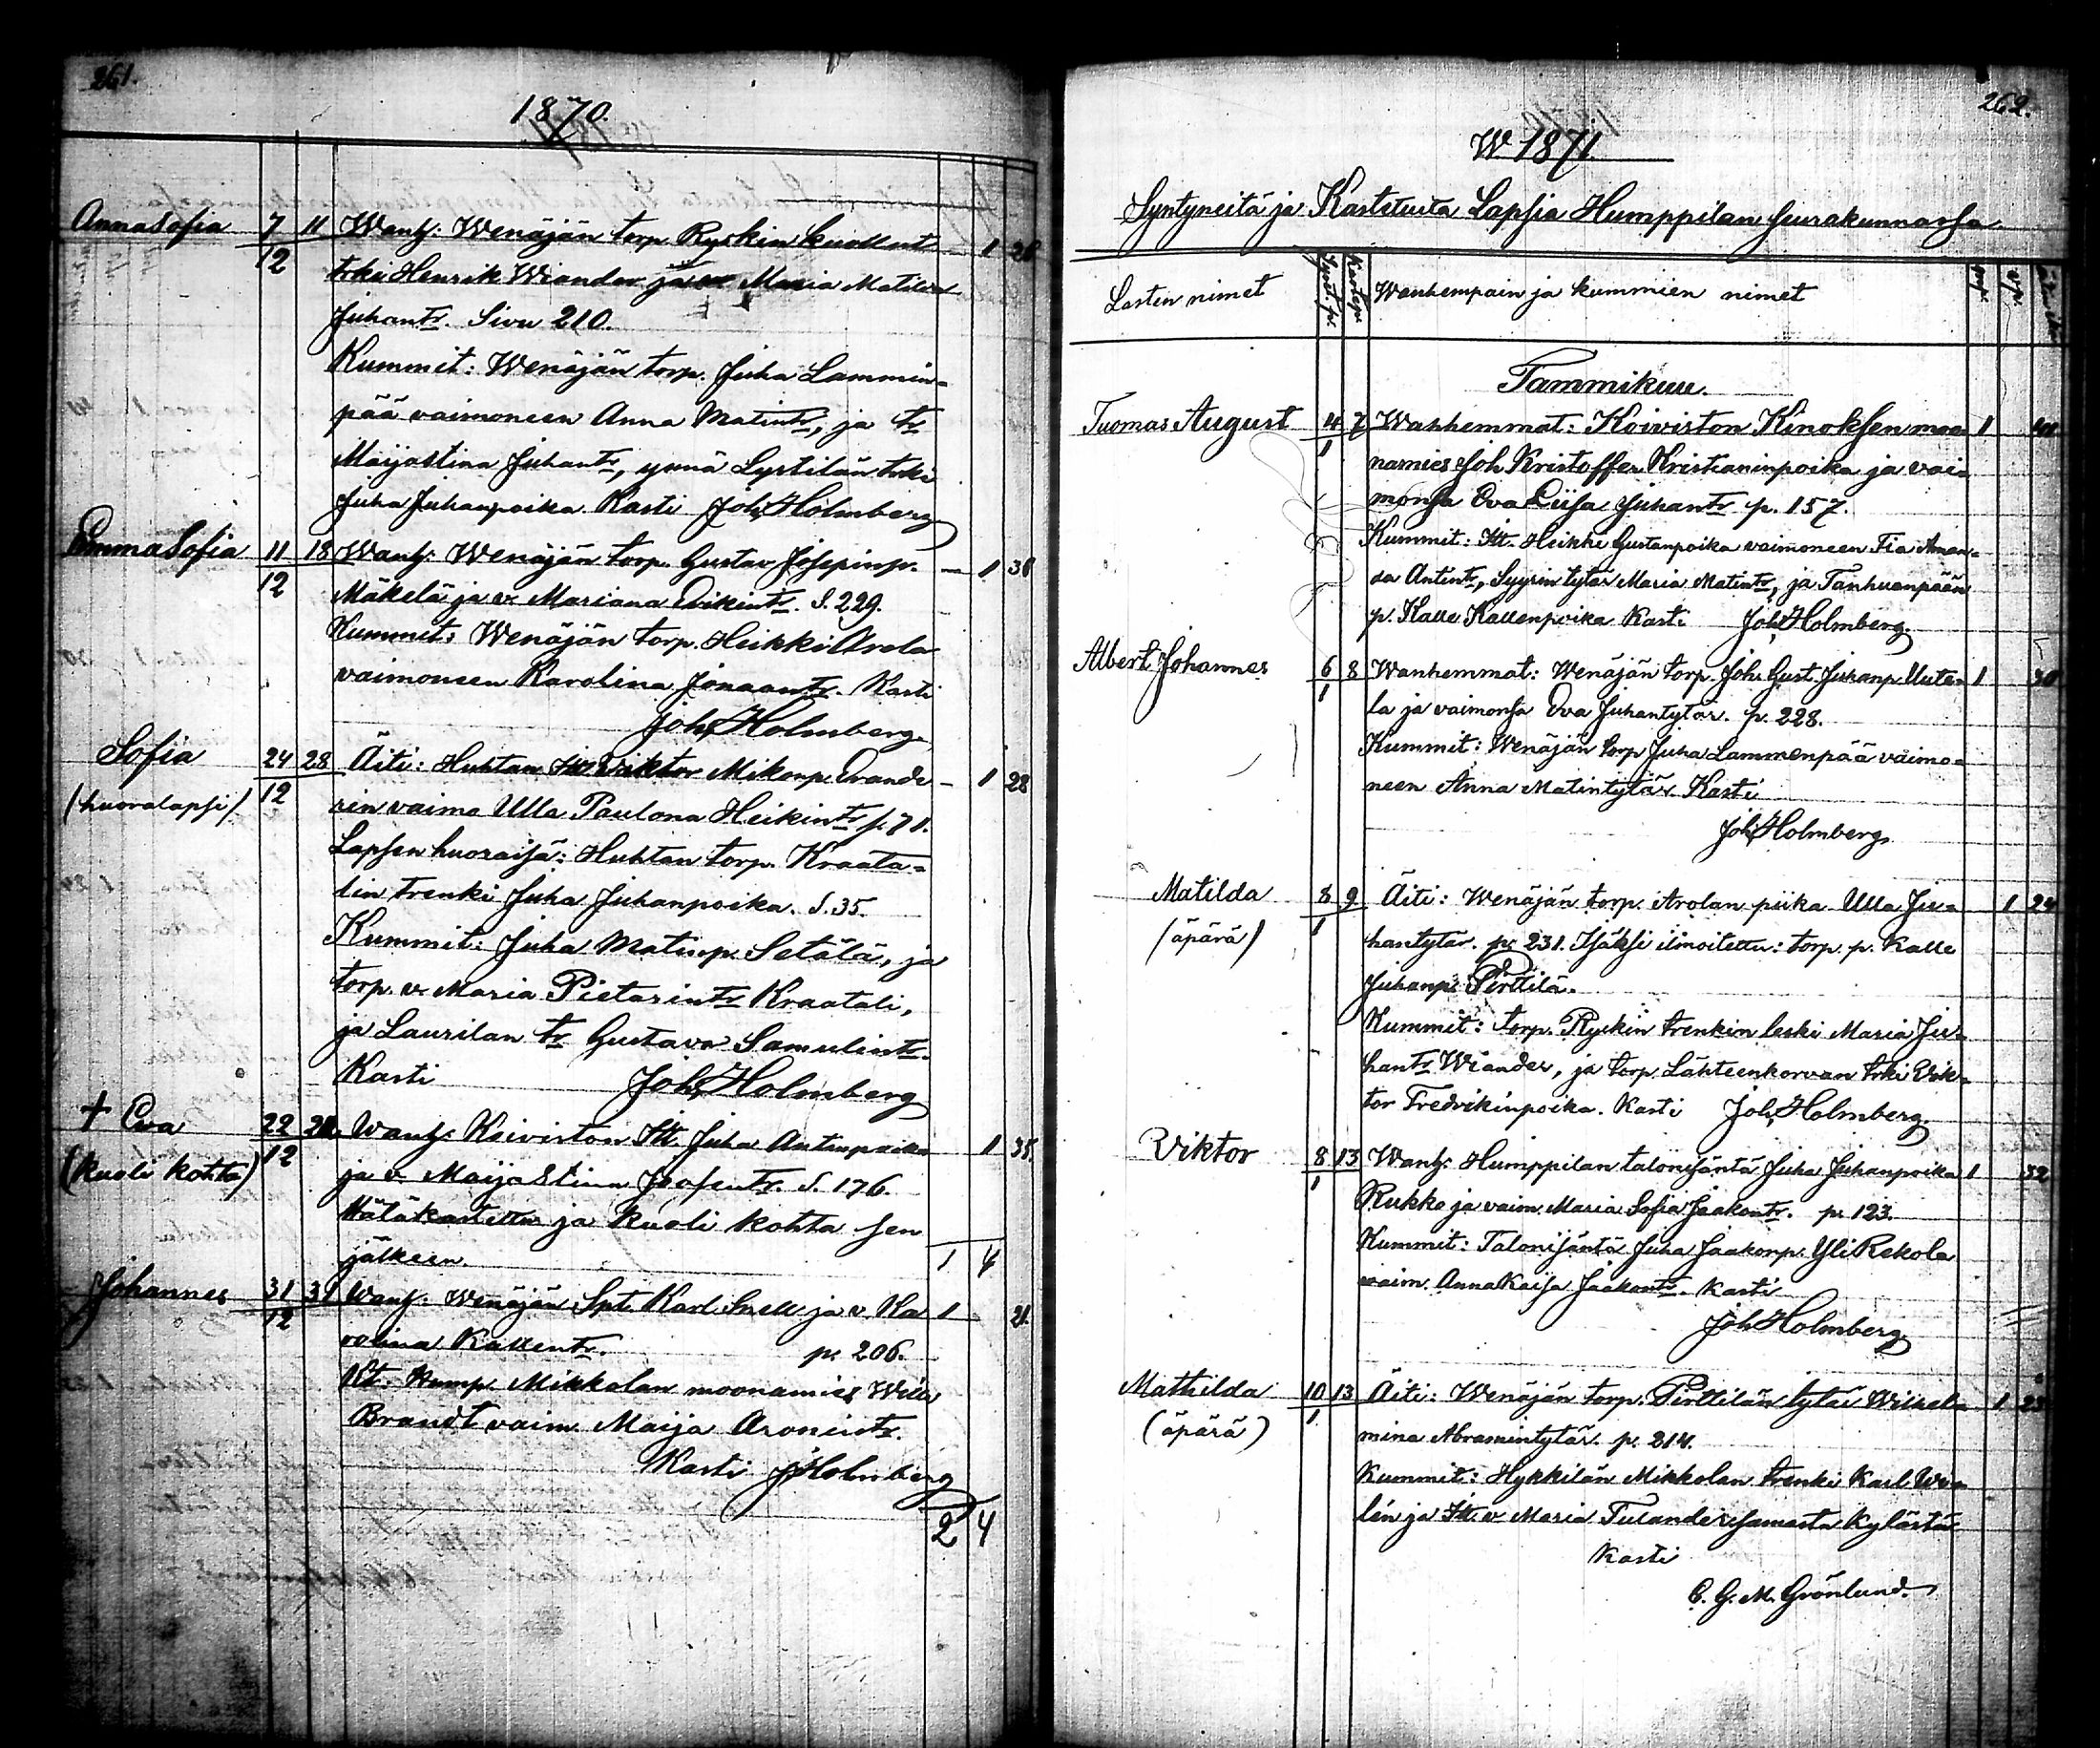 261.
1870.
Anna Sofia 7/12 11 Wanh: Wenäjän torp. Ryskin kuollut — 1 28
trki Henrik Wiander ja Maria Matilda
Juhantr. Sivu 210.
Kummit: Wenäjän torp. Juha Lammin-
pää vaimoneen Anna Matintr, ja tr
Maijastina Juhantr, ynnä Lystilän trki
Juha Juhanpoika. Kasti Joh. Holmberg
Emma Sofia 11/12 18 Wanh: Wenäjän torp. Gustav Josepinp. — 1 38
Mäkelä ja v. Mariana Erikintr. S. 229.
Kummit: Wenäjän torp. Heikki Arola
vaimoneen Karolina Jonaantr. Kasti
Joh. Holmberg.
Sofia 24/12 28 Äiti: Huhtan Itt. Viktor Mikonp. Grande- — 1 28
(huoralapsi) rin vaimo Ulla Paulona Heikintr p. 71.
Lapsen huoraisä: Huhtan torp. Kraata-
lin trenki Juha Juhanpoika. S. 35.
Kummit: Juha Matinp. Setälä, ja
torp. v. Maria Pietarintr Kraatali,
ja Laurilan tr Gustava Samulintr.
Kasti Joh. Holmberg
+ Eva 22/12 Wanh: Koiviston Itt. Juha Antinpoika 1 35.
(kuoli kohta) ja v. Maija Stina Joosentr. S. 176.
Hätäkastettu ja kuoli kohta sen
jälkeen. 1 4
Johannes 31/12 31 Wanh: Wenäjän Spt. Karl Snell ja v. Ka 1 21
rolina Kallentr. p. 206.
Kt. Hump. Mikkolan moonamies Wille
Brandt vaim. Maija Aronintr.
Kasti J. Holmberg
2 4
262.
W. 1871.
Syntyneitä ja Kastetuita Lapsia Humppilan seurakunnassa
Lasten nimet Synt. p. Kastep. Wanhempain ja kummien nimet mp. vp.
Tammikuu.
Tuomas August 4/1 7 Wanhemmat: Koiviston Kinoksen moo- 1
namies Joh Kristoffer Kristianinpoika ja vai-
monsa Eva Liisa Juhantr p. 157.
Kummit: Itt. Heikki Gustanpoika vaimoneen Fia Aman-
da Antintr, Syyrin tytär Maria Matintr, ja Tanhuanpään
p. Kalle Kallenpoika Kasti Joh. Holmberg.
Albert Johannes 6/1 8 Wanhemmat: Wenäjän torp. Joh. Gust. Juhanp. Uute- 1 30
la ja vaimonsa Eva Juhantytär. p. 228.
Kummit: Wenäjän torp Juha Lammenpää vaimo-
neen Anna Matintytär. Kasti
Joh. Holmberg.
Matilda 8/1 9 Äiti: Wenäjän torp. Arolan piika Ulla Ju- 1 24
(äpärä) hantytär. p. 231. Isäksi ilmoitettu: torp. p. Kalle
Juhanp. Pirttilä.
Kummit: torp. Ryskin trenkin leski Maria Ju-
hantr Wiander, ja torp. Lähteenkorvan trki Vik-
tor Fredrikinpoika. Kasti Joh. Holmberg.
Viktor 8/1 13 Wanh: Humppilan talonisäntä Juha Juhanpoika 1 32
Rukko ja vaim. Maria Sofia Jaakontr. p. 123.
Kummit: Talonisäntä Juha Jaakonp. Yli Rekola
vaim. Anna Kaisa Jaakontr. Kasti
Joh. Holmberg
Mathilda 10/1 13 Äiti: Wenäjän torp. Pirttilän tytär Wilhel- 1 23
(äpärä) mina Abramintytär. p. 214.
Kummit: Hykkilän Mikkolan trenki Karl Wa-
lén ja Itt. v. Maria Tulander samasta kylästä
Kasti
C. G. M. Grönlund.